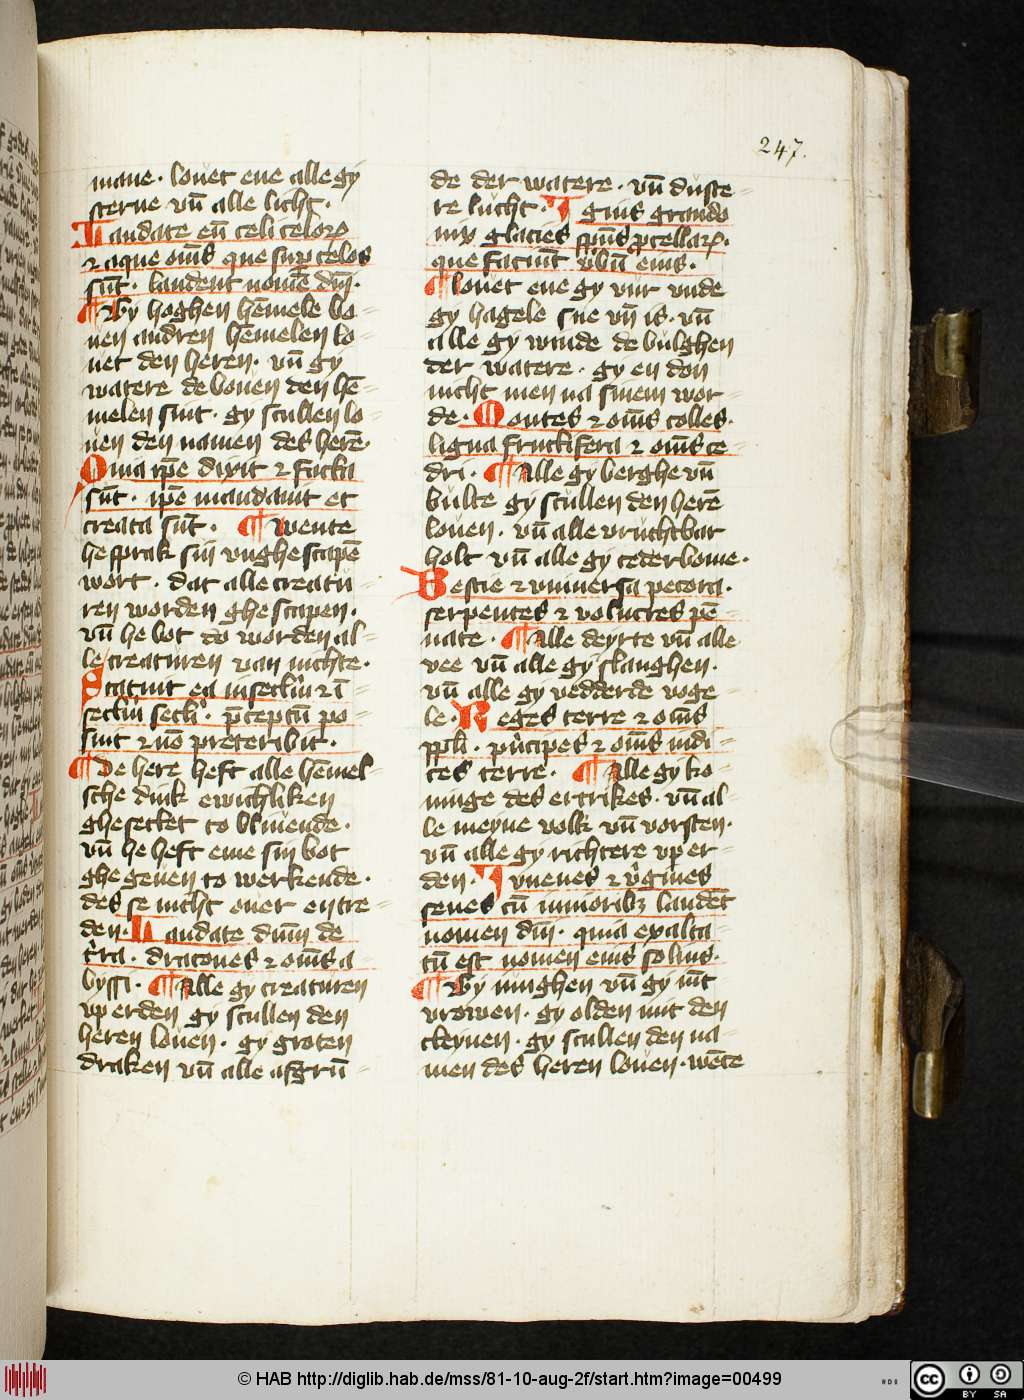 247.
mane · louet ene alle gy
sterne vn̄ alle licht ·
Laudate eū celi celorꝫ
⁊ aque om̄s que suꝑ celos
sūt · laudent nomē dn̄i ·
Gy hoghen hēmele bo=
uen andren hēmelen lo=
uet den heren · vn̄ gy
watere de bouen den hē=
melen sint · gy scullen lo=
uen den namen des herē ·
Quia ip̄e dixit ⁊ facta
sūt · ip̄e mandauit et
creata sūt · Wente
he sprak sin vnghescapē
wort · dat alle creatu=
ren worden ghescapen ·
vn̄ he bot do worden al=
le creaturen van nichte ·
Statuit ea in seclm̄ ⁊ ī=
seclm̄ secli · p̄ceptū po=
suit ⁊ nō preteribit ·
De here heft alle hēmel=
sche dink ewichliken
ghesettet to bliuende ·
vn̄ he heft eme sin bot
ghegeuen to werkende ·
des se nicht ouer entre=
den · Laudate dn̄m de
t̄ra · dracones ⁊ om̄s a=
byssi · Alle gy creaturen
vp erden gy scullen den
heren louen · gy groten
draken vn̄ alle afgrū=
de der watere · vn̄ duste=
re lucht · Ignis grando
nix glacies sp̄us ꝓcellarꝫ ·
que faciūt v̄bū eius ·
louet ene gy vur vnde
gy hagele sne vn̄ is · vn̄
alle gy winde de bulghen
der watere · gy en don
nicht men na sinem wor=
de · Montes ⁊ om̄s colles ·
ligna fructifera ⁊ om̄s ce=
dri · Alle gy berghe vn̄
bulte gy scullen den herē
louen · vn̄ alle vruchtbar
holt vn̄ alle gy cederbome ·
Bestie ⁊ vniuersa pecora ·
serpentes ⁊ volucres pē=
nate · Alle deyrte vn̄ alle
vee vn̄ alle gy slanghen ·
vn̄ alle gy vedderde voge=
le · Reges terre ⁊ om̄s
pp̄li · pn̄cipes ⁊ om̄s iudi=
ces terre · Alle gy ko=
ninge des ertrikes · vn̄ al=
le meyne volk vn̄ vorsten ·
vn̄ alle gy richtere vp er=
den · Iuuenes ⁊ v̄gines
senes cū iunioribꝫ laudēt
nomen dn̄i · quia exalta=
tū est nomen eius solius ·
Gy iunghen vn̄ gy iūc
vrowen · gy olden mit den
cleynen · gy scullen den na=
men des heren louen · wēte
© HAB http://diglib.hab.de/mss/81-10-aug-2f/start.htm?image=00499
cc BY SA